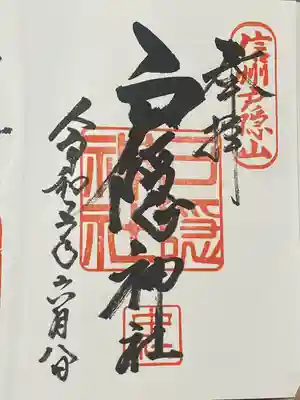 信州戸隠山
奉拝
戸隠神社
戸隠神社
中社
令和六年六月八日